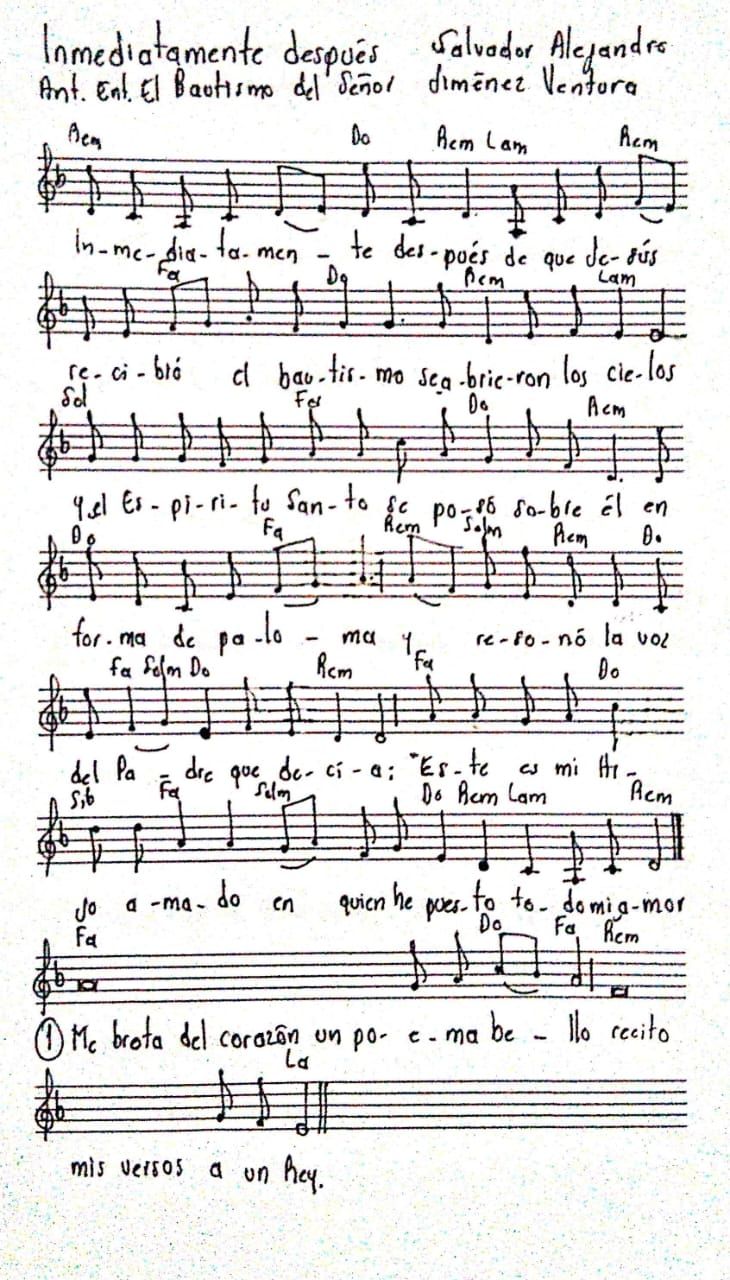 Inmediatamente después Salvador Alejandro
Ant. Ent. El Bautismo del Señor Jiménez Ventura
Rem Do Rem Lam Rem
In-me-dia-ta-men - te des-pués de que Je-sús
Fa Do Rem Lam
re-ci-bió el bau-tis-mo sea-brie-ron los cie-los
Sol Fa Do Rem
y el Es-pi-ri-tu San-to se po-só so-bre él en
Do Fa Rem Solm Rem Do
for-ma de pa-lo - ma y re-so-nó la voz
Fa Solm Do Rem Fa Do
del Pa - dre que de-cí-a: "Es-te es mi Hi-
Sib Fa Solm Do Rem Lam Rem
jo a-ma-do en quien he pues-to to-do mi a-mor
Fa Do Fa Rem
① Me brota del corazón un po-e-ma be - llo recito
La
mis versos a un Rey.